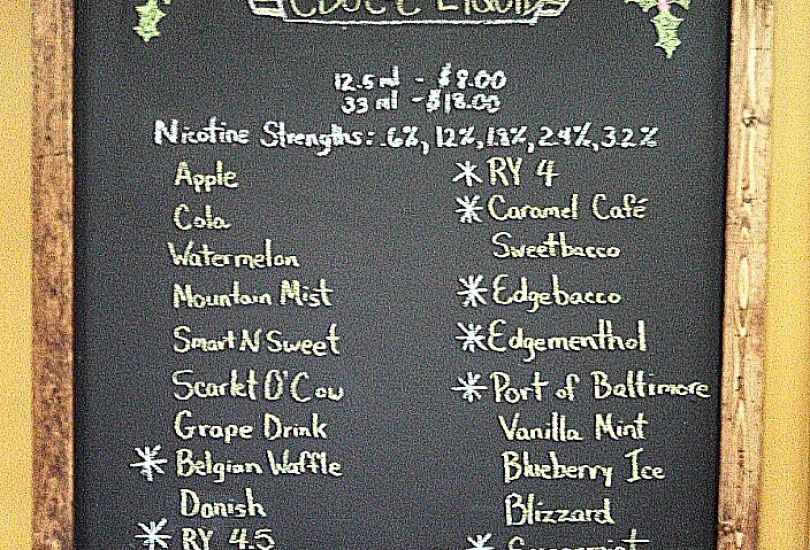 EDGE E LIQUID
12.5 ml - $8.00
33 ml - $18.00
Nicotine Strengths: .6%, 1.2%, 1.8%, 2.4%, 3.2%
Apple
Cola
Watermelon
Mountain Mist
Smart N Sweet
Scarlet O'Cow
Grape Drink
* Belgian Waffle
Danish
* RY 4.5
* RY 4
* Caramel Café
Sweetbacco
* Edgebacco
* Edgementhol
* Port of Baltimore
Vanilla Mint
Blueberry Ice
Blizzard